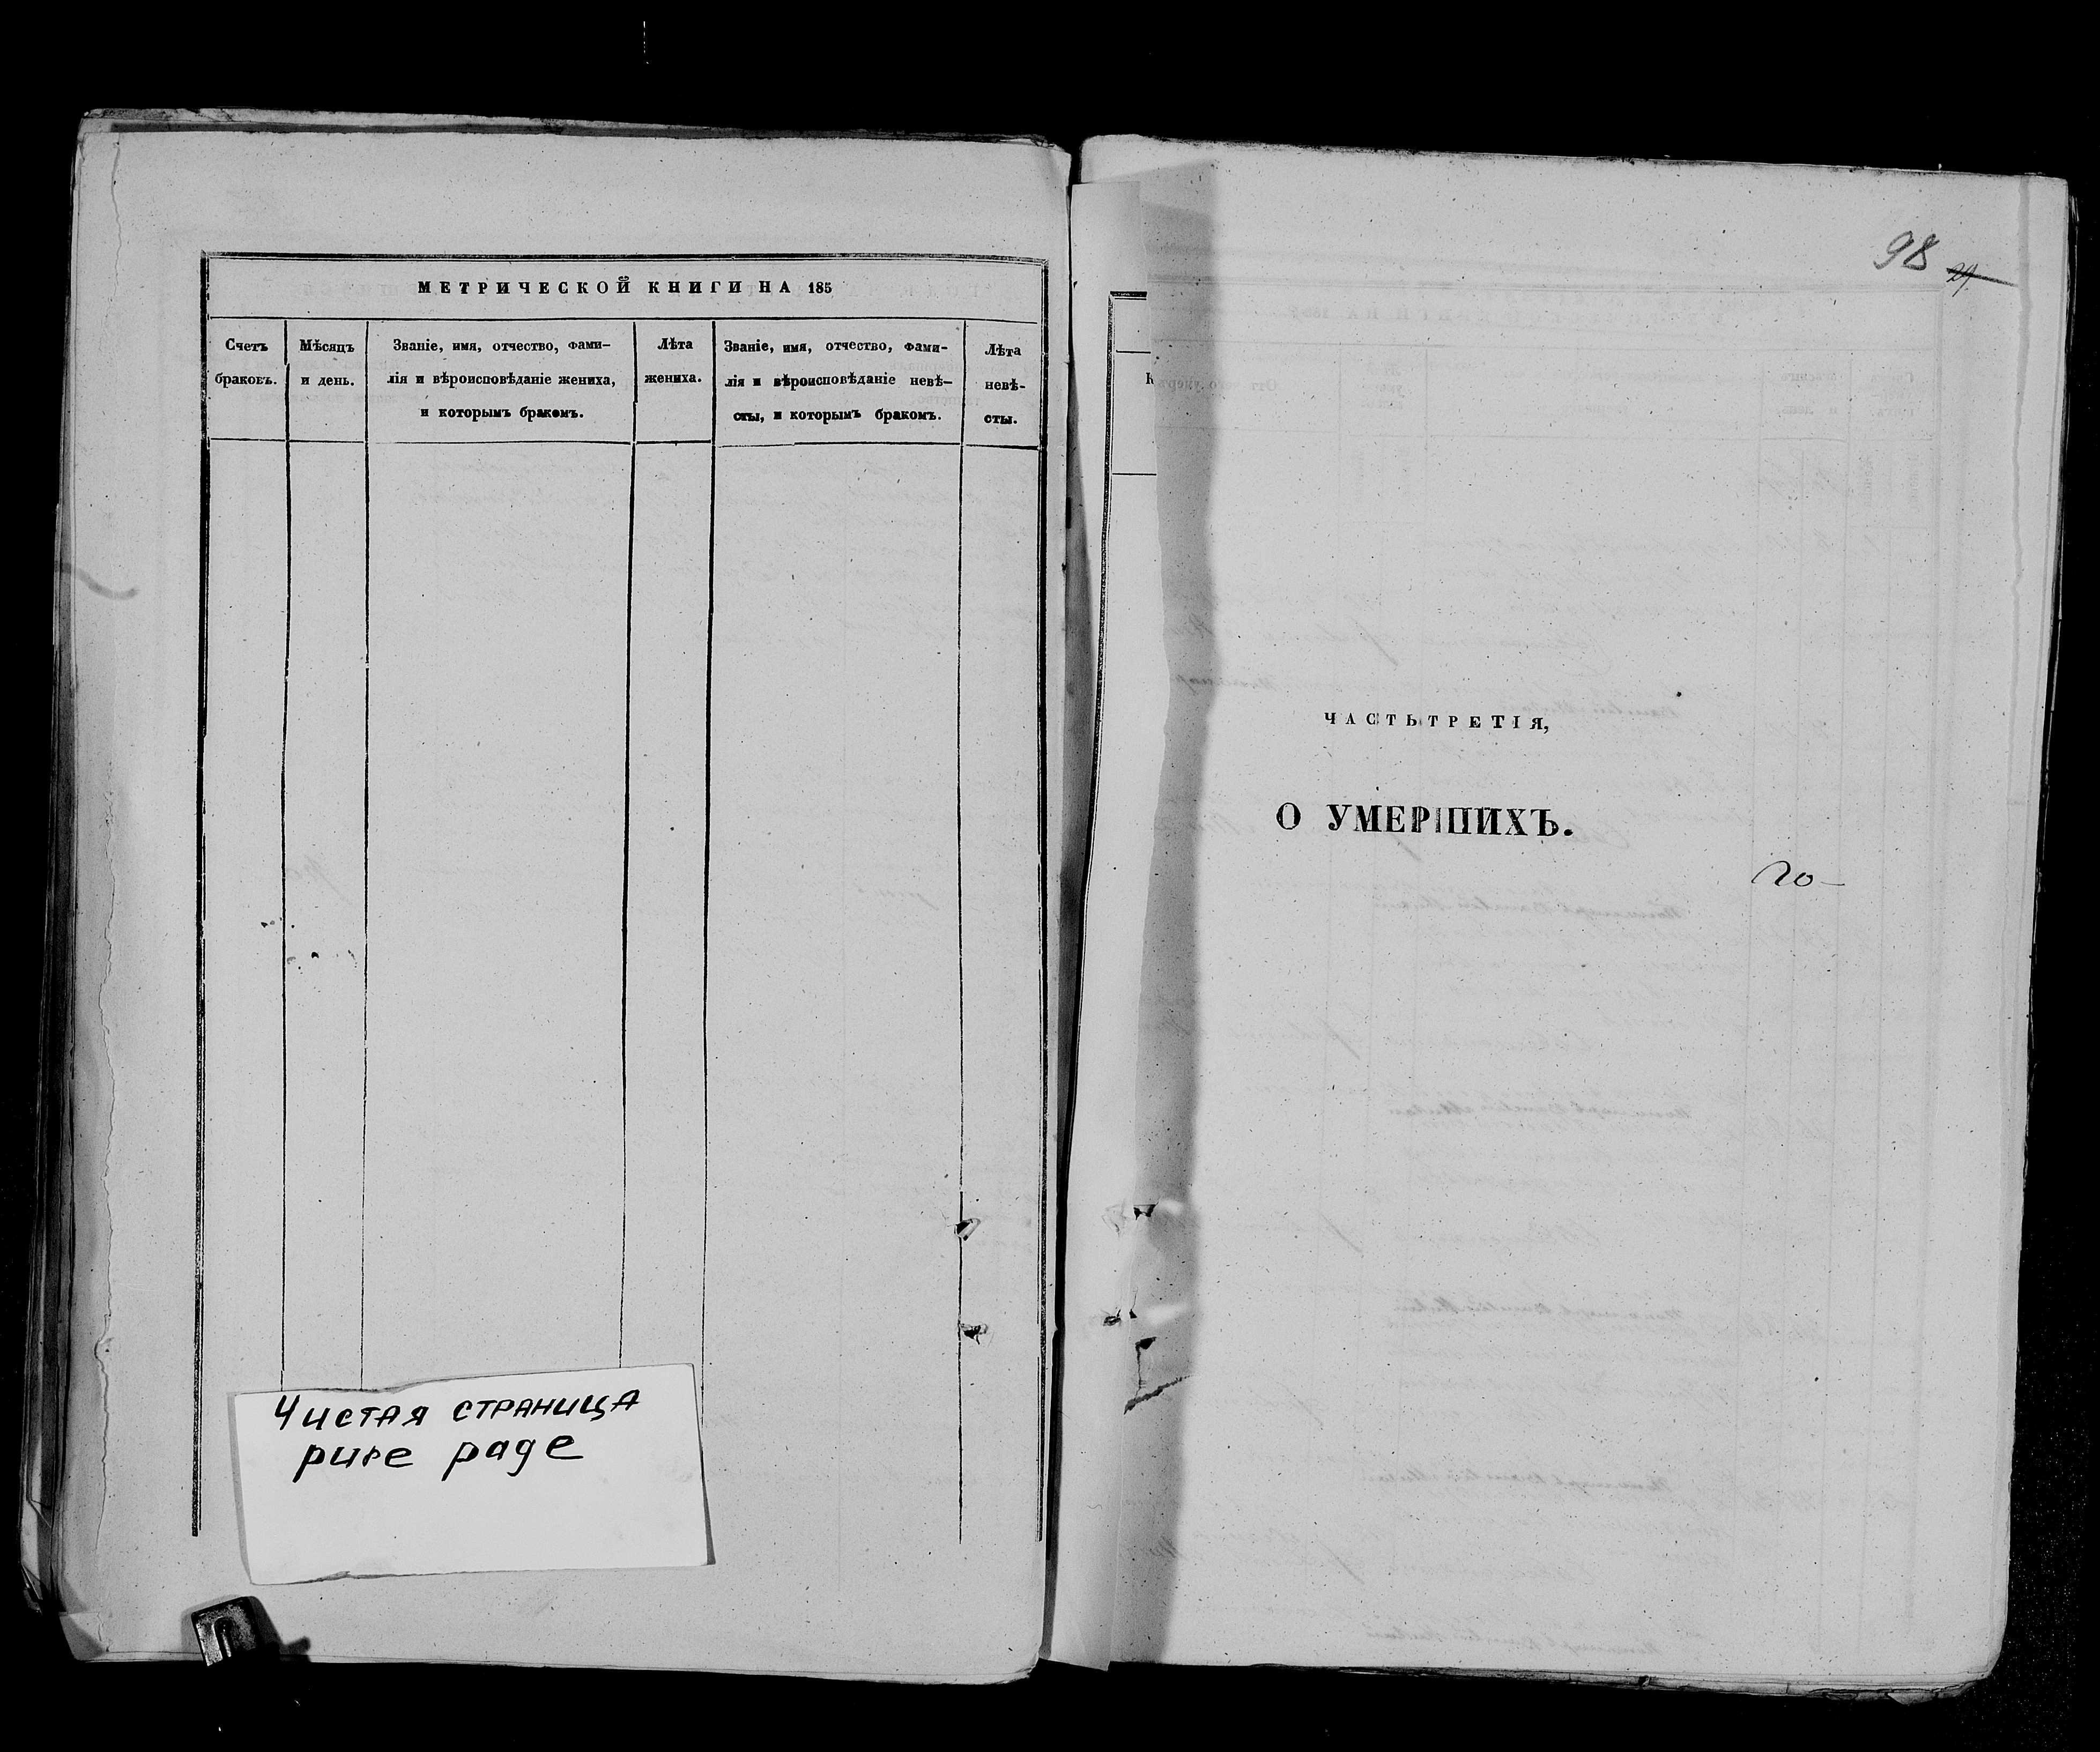 МЕТРИЧЕСКОЙ КНИГИ НА 185
Счетъ
браковъ.
Мѣсяцъ
и день.
Званіе, имя, отчество, фами-
лія и вѣроисповѣданіе жениха,
и которымъ бракомъ.
Лѣта
жениха.
Званіе, имя, отчество, фами-
лія и вѣроисповѣданіе невѣ-
сты, и которымъ бракомъ.
Лѣта
невѣ-
сты.
Чистая страница
pure page
98
К
ЧАСТЬ ТРЕТІЯ,
О УМЕРШИХЪ.